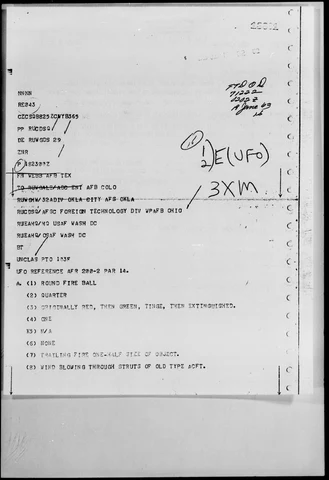 NNNN
HEB43
PP RUCDSQ
DE RUWGDS 29
ZNR
FM WEBB AFB TEX
TO RUWGALE/ADC ENT AFB COLO
RUWGHW/32ADIV OKLA CITY AFS OKLA
RUCDSQ/AFSC FOREIGN TECHNOLOGY DIV WPAFB OHIO
RUEAHQ/HQ USAF WASH DC
RUEAHQ/OSAF WASH DC
BT
UNCLAS PTO 183F
UFO REFERENCE AFR 200-2 PAR 14.
A. (1) ROUND FIRE BALL
(2) QUARTER
(3) ORIGINALLY RED, THEN GREEN, TINGE, THEN EXTINGUISHED.
(4) ONE
(5) N/A
(6) NONE
(7) TRAILING FIRE ONE-HALF SIZE OF OBJECT.
(8) WIND BLOWING THROUGH STRUTS OF OLD TYPE ACFT.
FTD OD
1)
2) E(UFO)
3XM